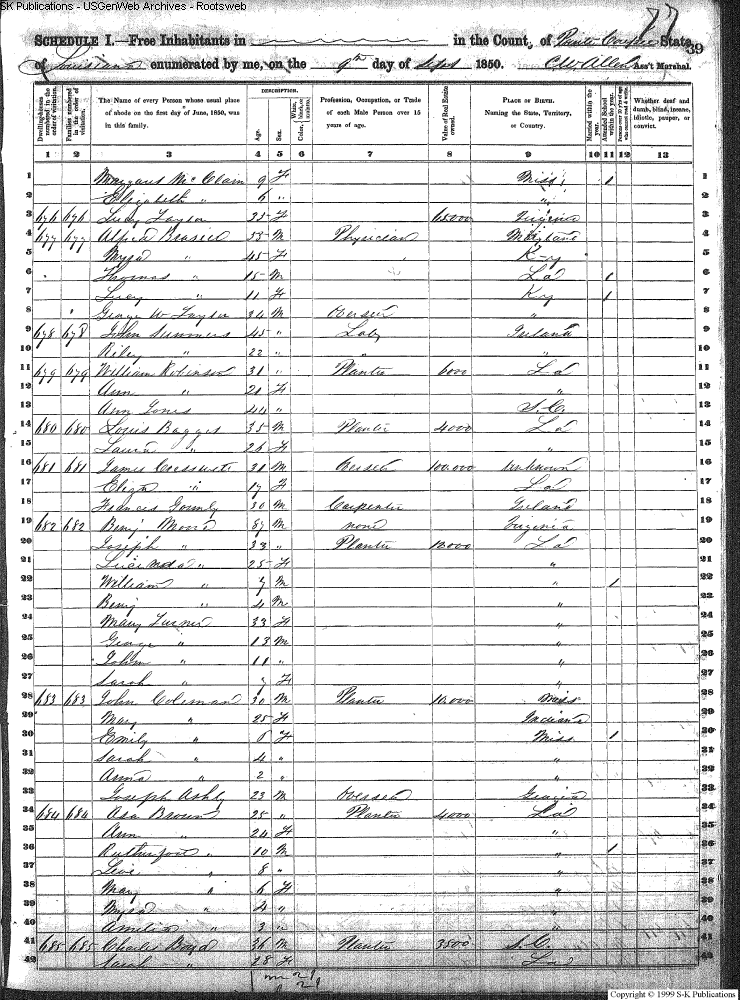 SK Publications - USGenWeb Archives - Rootsweb
77
SCHEDULE I.—Free Inhabitants in in the County of Pointe Coupee State 39
of Louisiana enumerated by me, on the 9th day of Sept 1850. C W Allen Ass't Marshal.
Dwelling-houses numbered in the order of visitation.
Families numbered in the order of visitation.
The Name of every Person whose usual place of abode on the first day of June, 1850, was in this family.
DESCRIPTION.
Age.
Sex.
Color, White, black, or mulatto.
Profession, Occupation, or Trade of each Male Person over 15 years of age.
Value of Real Estate owned.
PLACE OF BIRTH. Naming the State, Territory, or Country.
Married within the year.
Attended School within the year.
Persons over 20 y'rs of age who cannot read & write.
Whether deaf and dumb, blind, insane, idiotic, pauper, or convict.
1 2 3 4 5 6 7 8 9 10 11 12 13
1 Margaret McClain 9 F Miss 1 1
2 Elizabeth " 6 " " 2
3 676 676 Lucy Taylor 35 F 65000 Virginia 3
4 677 677 Alfred 53 M Physician Maryland 4
5 " 45 F K-y 5
6 Thomas " 15 M La 1 6
7 Lucy " 11 F Ky 1 7
8 George W Taylor 24 M Overseer " 8
9 678 678 John Summers 45 " Ireland 9
10 Riley " 22 " " " 10
11 679 679 William Robinson 31 " Planter 6000 La 11
12 Ann " 21 F " 12
13 Ann Jones 44 " S.C. 13
14 680 680 Louis 35 M Planter 4000 La 14
15 Laura " 26 F " 15
16 681 681 James 31 M Overseer 100,000 Unknown 16
17 Eliza " 17 F La 17
18 Frances 30 M Carpenter Ireland 18
19 682 682 Benj Moore 87 M none Virginia 19
20 Joseph " 33 " Planter 12000 La 20
21 Lucinda " 25 F " 21
22 William " 7 M " 1 22
23 Benj " 4 M 23
24 Mary Turner 33 F " 24
25 George " 13 M " 25
26 John " 11 " " 26
27 Sarah " 7 F " 27
28 683 683 John Coleman 30 M Planter 10,000 Miss 28
29 Mary " 25 F Indiana 29
30 Emily " 6 F Miss 1 30
31 Sarah " 4 " " 31
32 Anna " 2 " " 32
33 Joseph Ashly 23 M Overseer 33
34 684 684 Asa Brown 25 " Planter 4000 La 34
35 Ann " 24 F " 35
36 " 10 M " 1 36
37 Levi " 8 " " 37
38 Mary " 6 F " 38
39 " 4 " " 39
40 Amelia " 3 " " 40
41 685 685 Charles Boyd 36 M Planter 3500 S.C. 41
42 Sarah " 28 F La 42
m 21
21
Copyright © 1999 S-K Publications